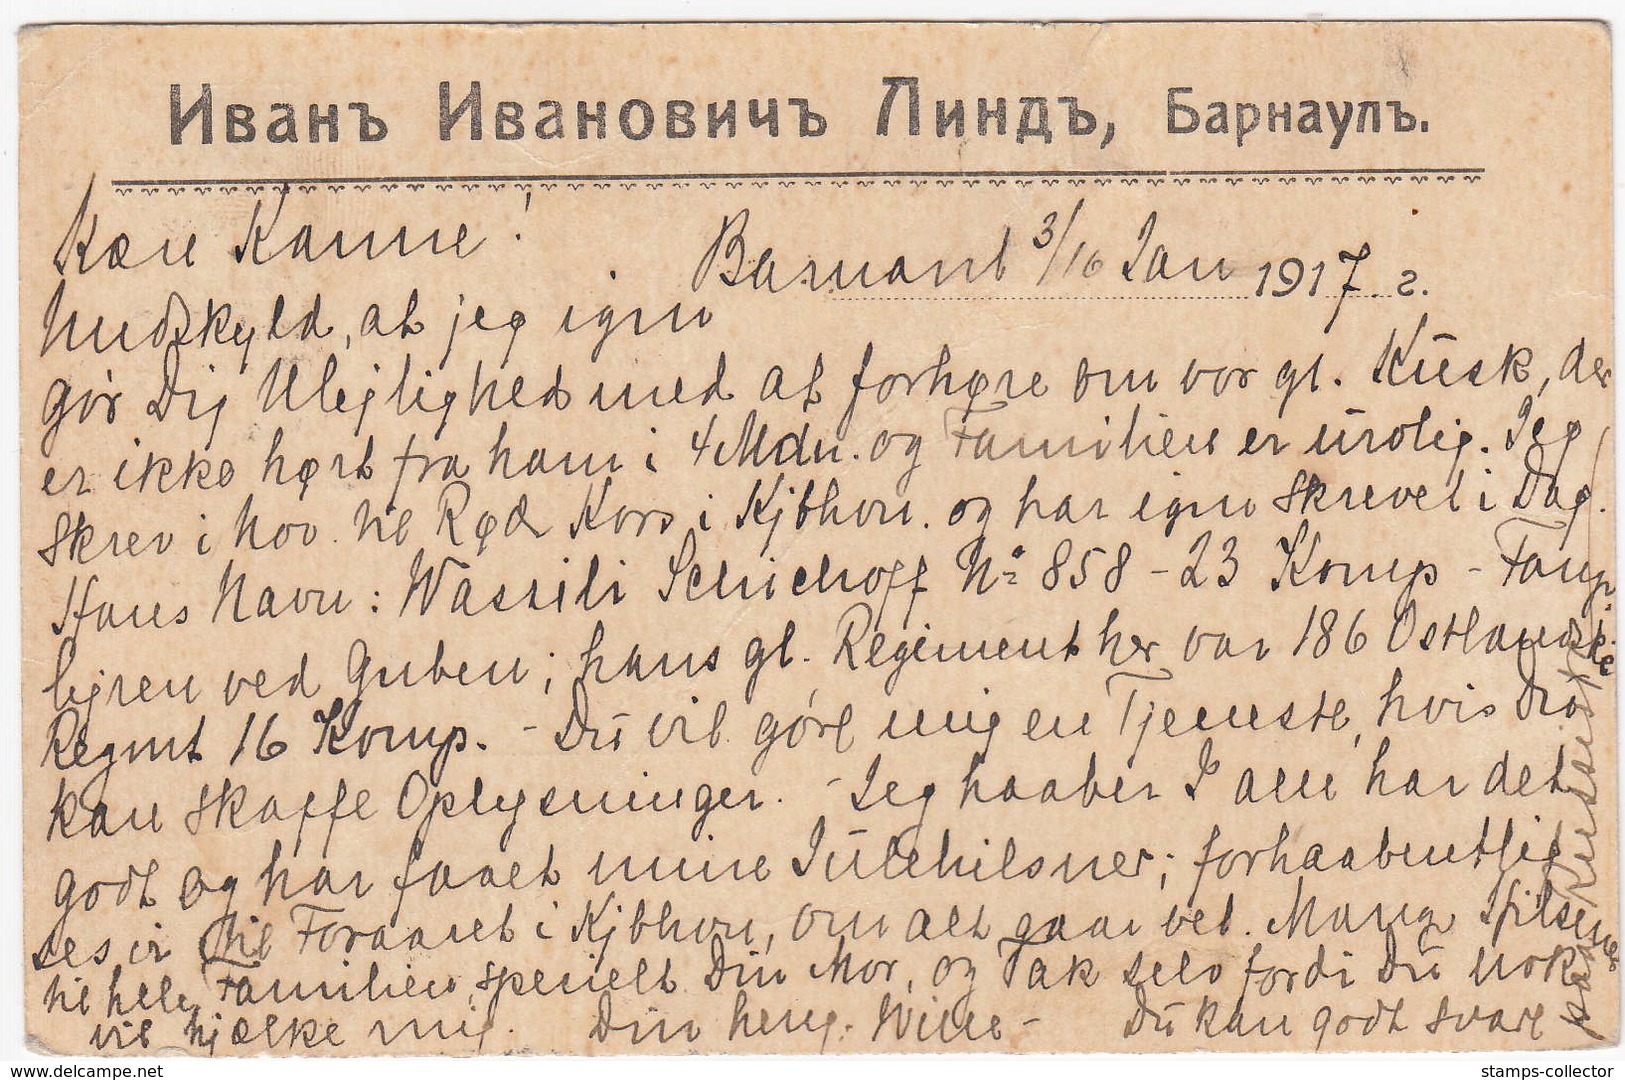 Иванъ Ивановичъ Линдъ, Барнаулъ.
Kære Hanne!
Barnaul 3/16 Jan 1917 г.
Undskyld, at jeg igen
gör Dig Ulejlighed med at forhøre om vor gl. Kusk, der
er ikke hørt fra ham i 4 Mdn. og Familien er urolig. Jeg
skrev i Nov. til Røde Kors i Kjbhvn. og har igen skrevet i Dag.
Hans Navn: Wassili Schichoff No 858 - 23 Komp - Fange
lejren ved Guben; hans gl. Regiment her var 186 Ostlandske
Regmt 16 Komp. - Du vil göre mig en Tjeneste, hvis Du
kan skaffe Oplysninger. - Jeg haaber I alle har det
godt og har faaet mine Julehilsner; forhaabentlig
ses vi til Foraaret i Kjbhvn, om alt gaar vel. Mange Hilsener
til hele Familien, specielt Din Mor, og Tak selv fordi Du nok
vil hjælke mig. Din heng: Wille - Du kan godt svare
paa Russisk